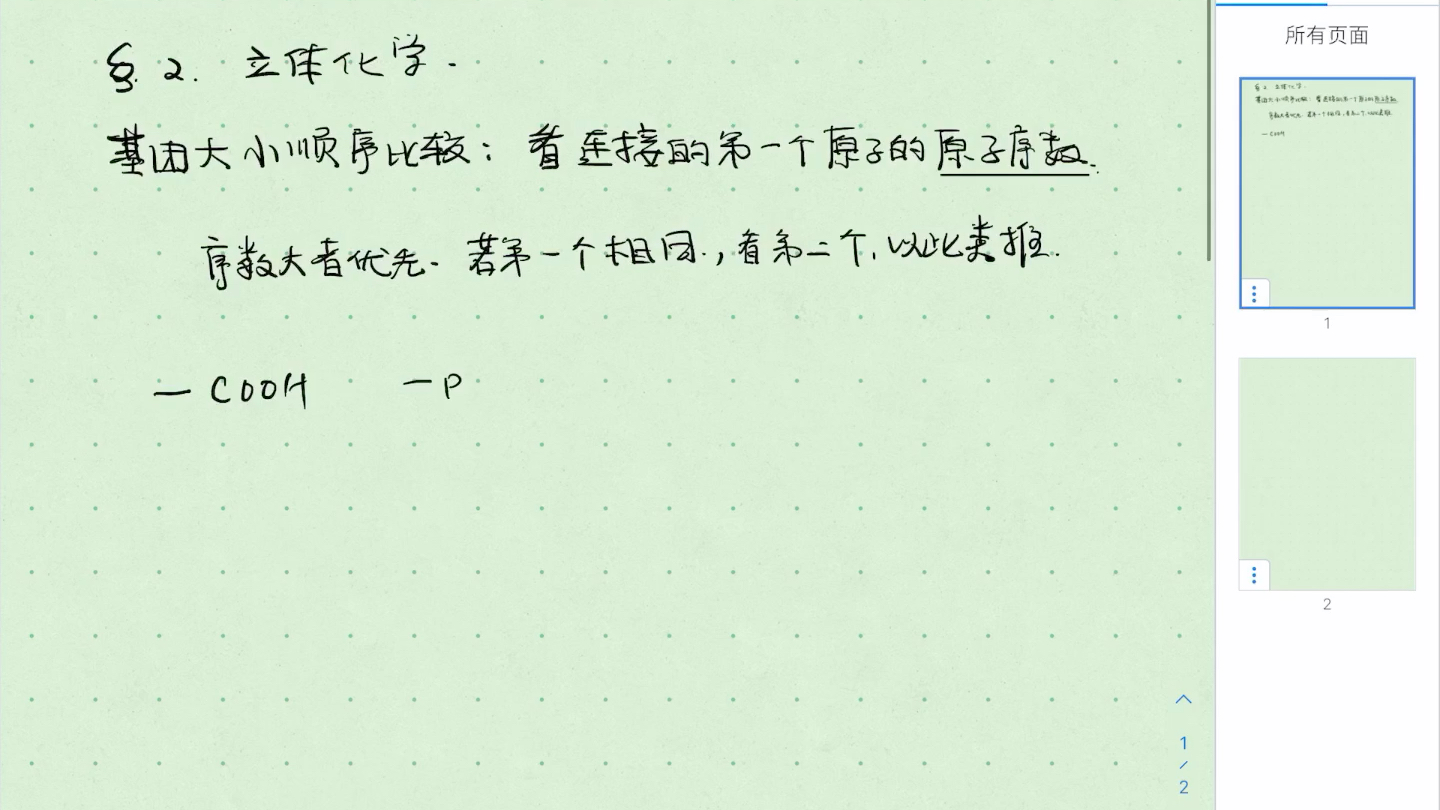 §2. 立体化学.
基团大小顺序比较：看连接的第一个原子的原子序数.
序数大者优先. 若第一个相同，看第二个，以此类推.
—COOH —P
所有页面
1
2
1/2